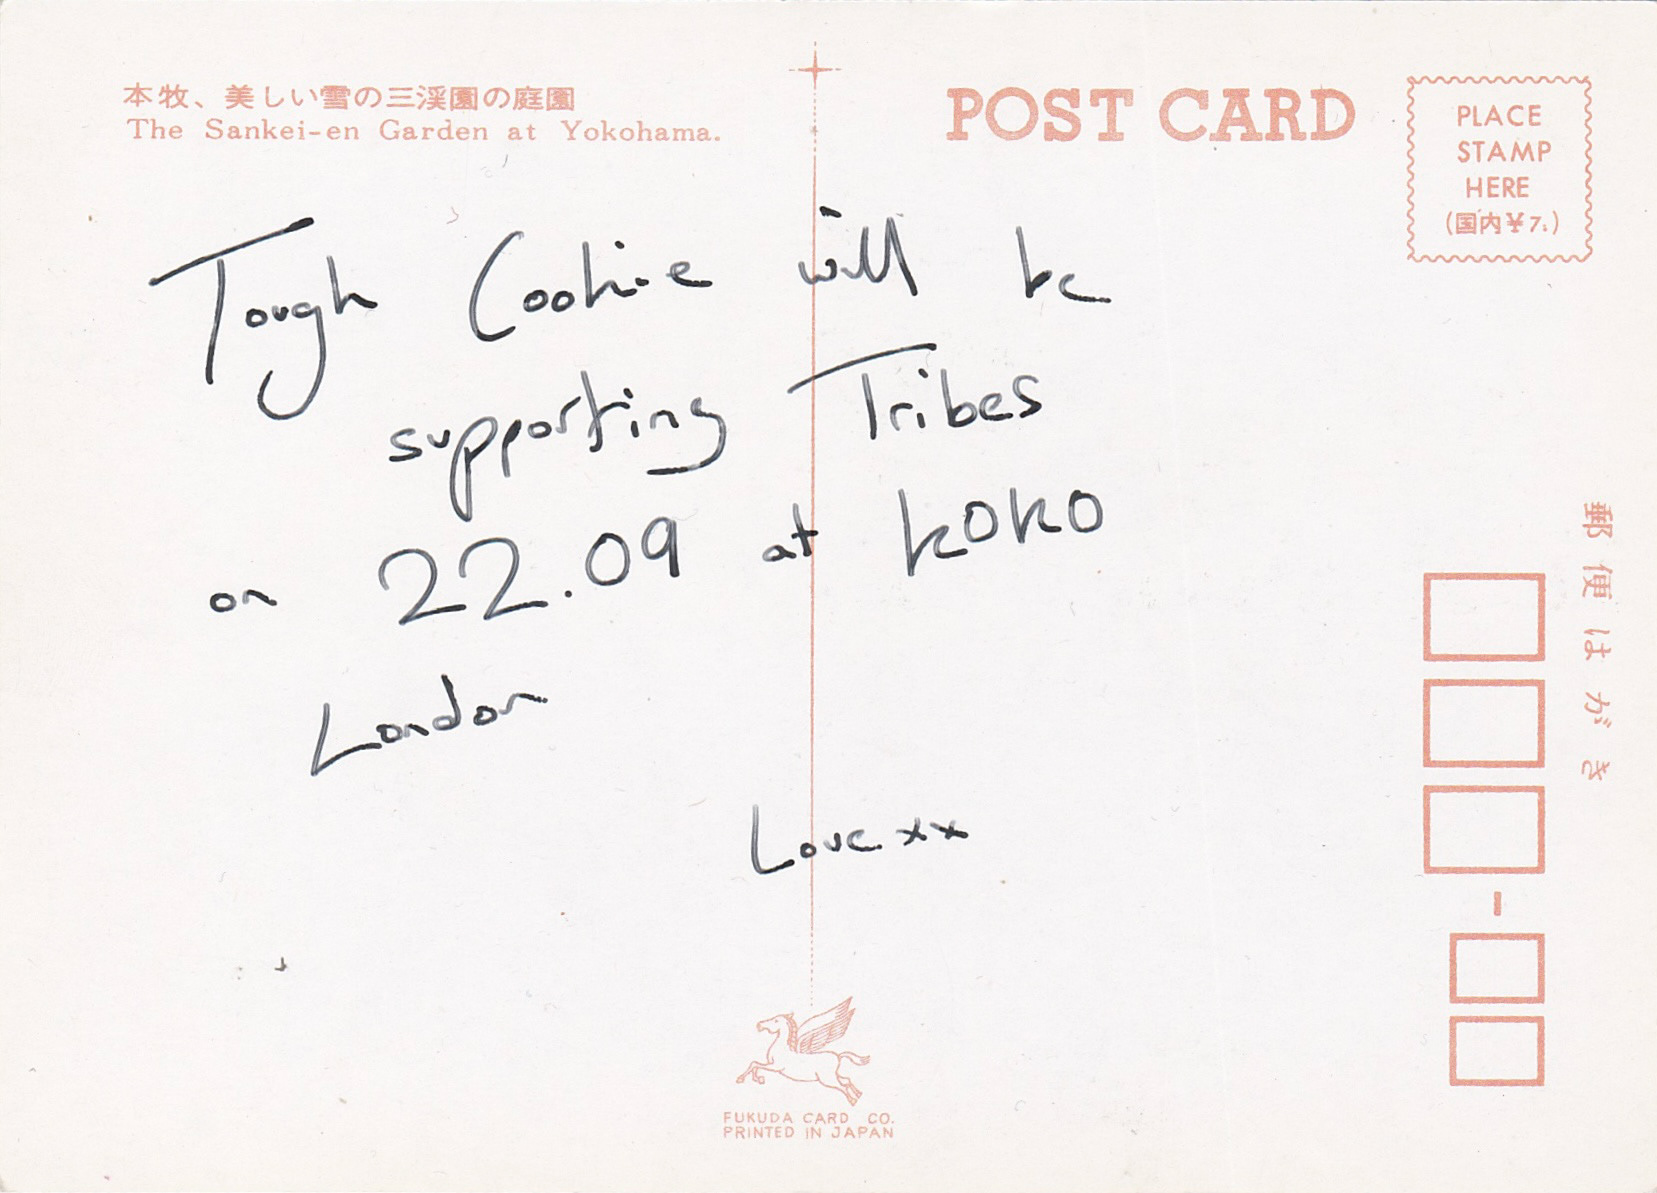 本牧、美しい雪の三渓園の庭園
The Sankei-en Garden at Yokohama.
POST CARD
PLACE
STAMP
HERE
(国内¥7.)
Tough Cookie will be
supporting Tribes
on 22.09 at KOKO
London
Love xx
郵便はがき
FUKUDA CARD CO.
PRINTED IN JAPAN